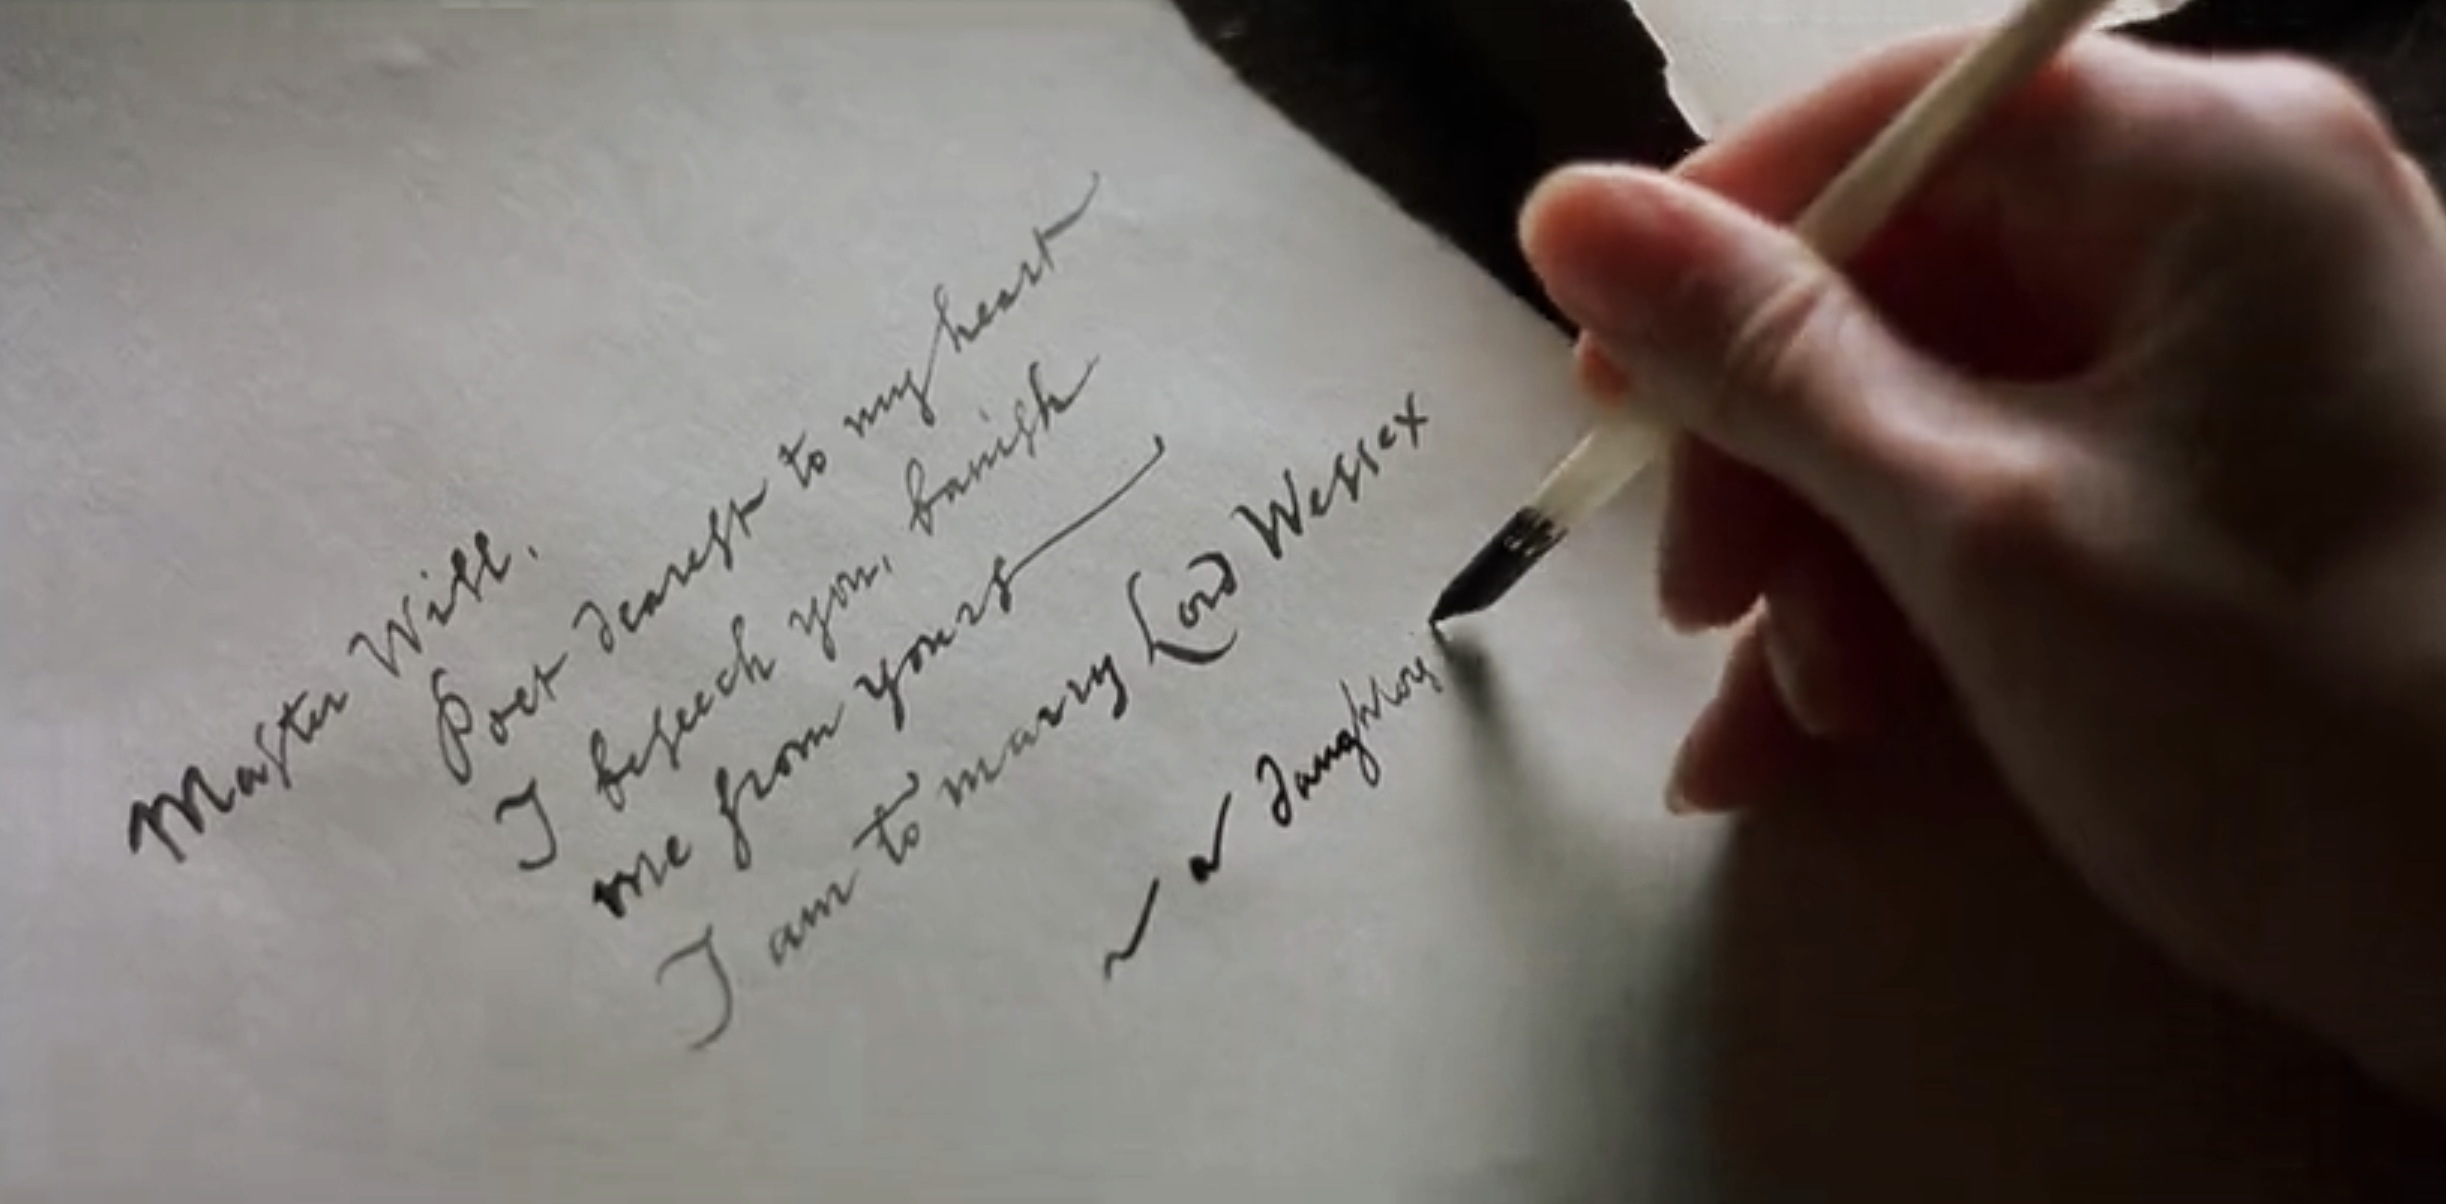 Master Will.
Poet dearest to my heart
I beseech you, banish
me from yours
I am to marry Lord Wessex
a daughters